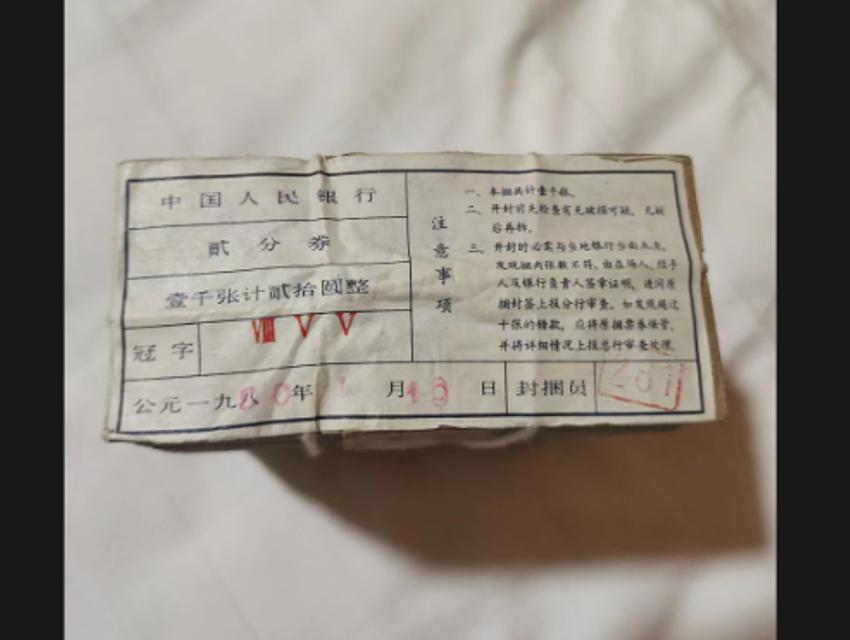 中国人民银行
贰分券
壹千张计贰拾圆整
冠字 Ⅷ Ⅴ Ⅴ
公元一九80年 月 日 封捆员
注意事项
一、本捆共计壹千张。
二、开封前先检查有无破损可疑，无疑
后再拆。
三、开封时必需与当地银行当面点清，
发现捆内张数不符，由在场人、经手
人及银行负责人签章证明，连同原
捆封签上报分行审查。如发现超过
十张的错款，应将原捆票券保管，
并将详细情况上报总行审查处理